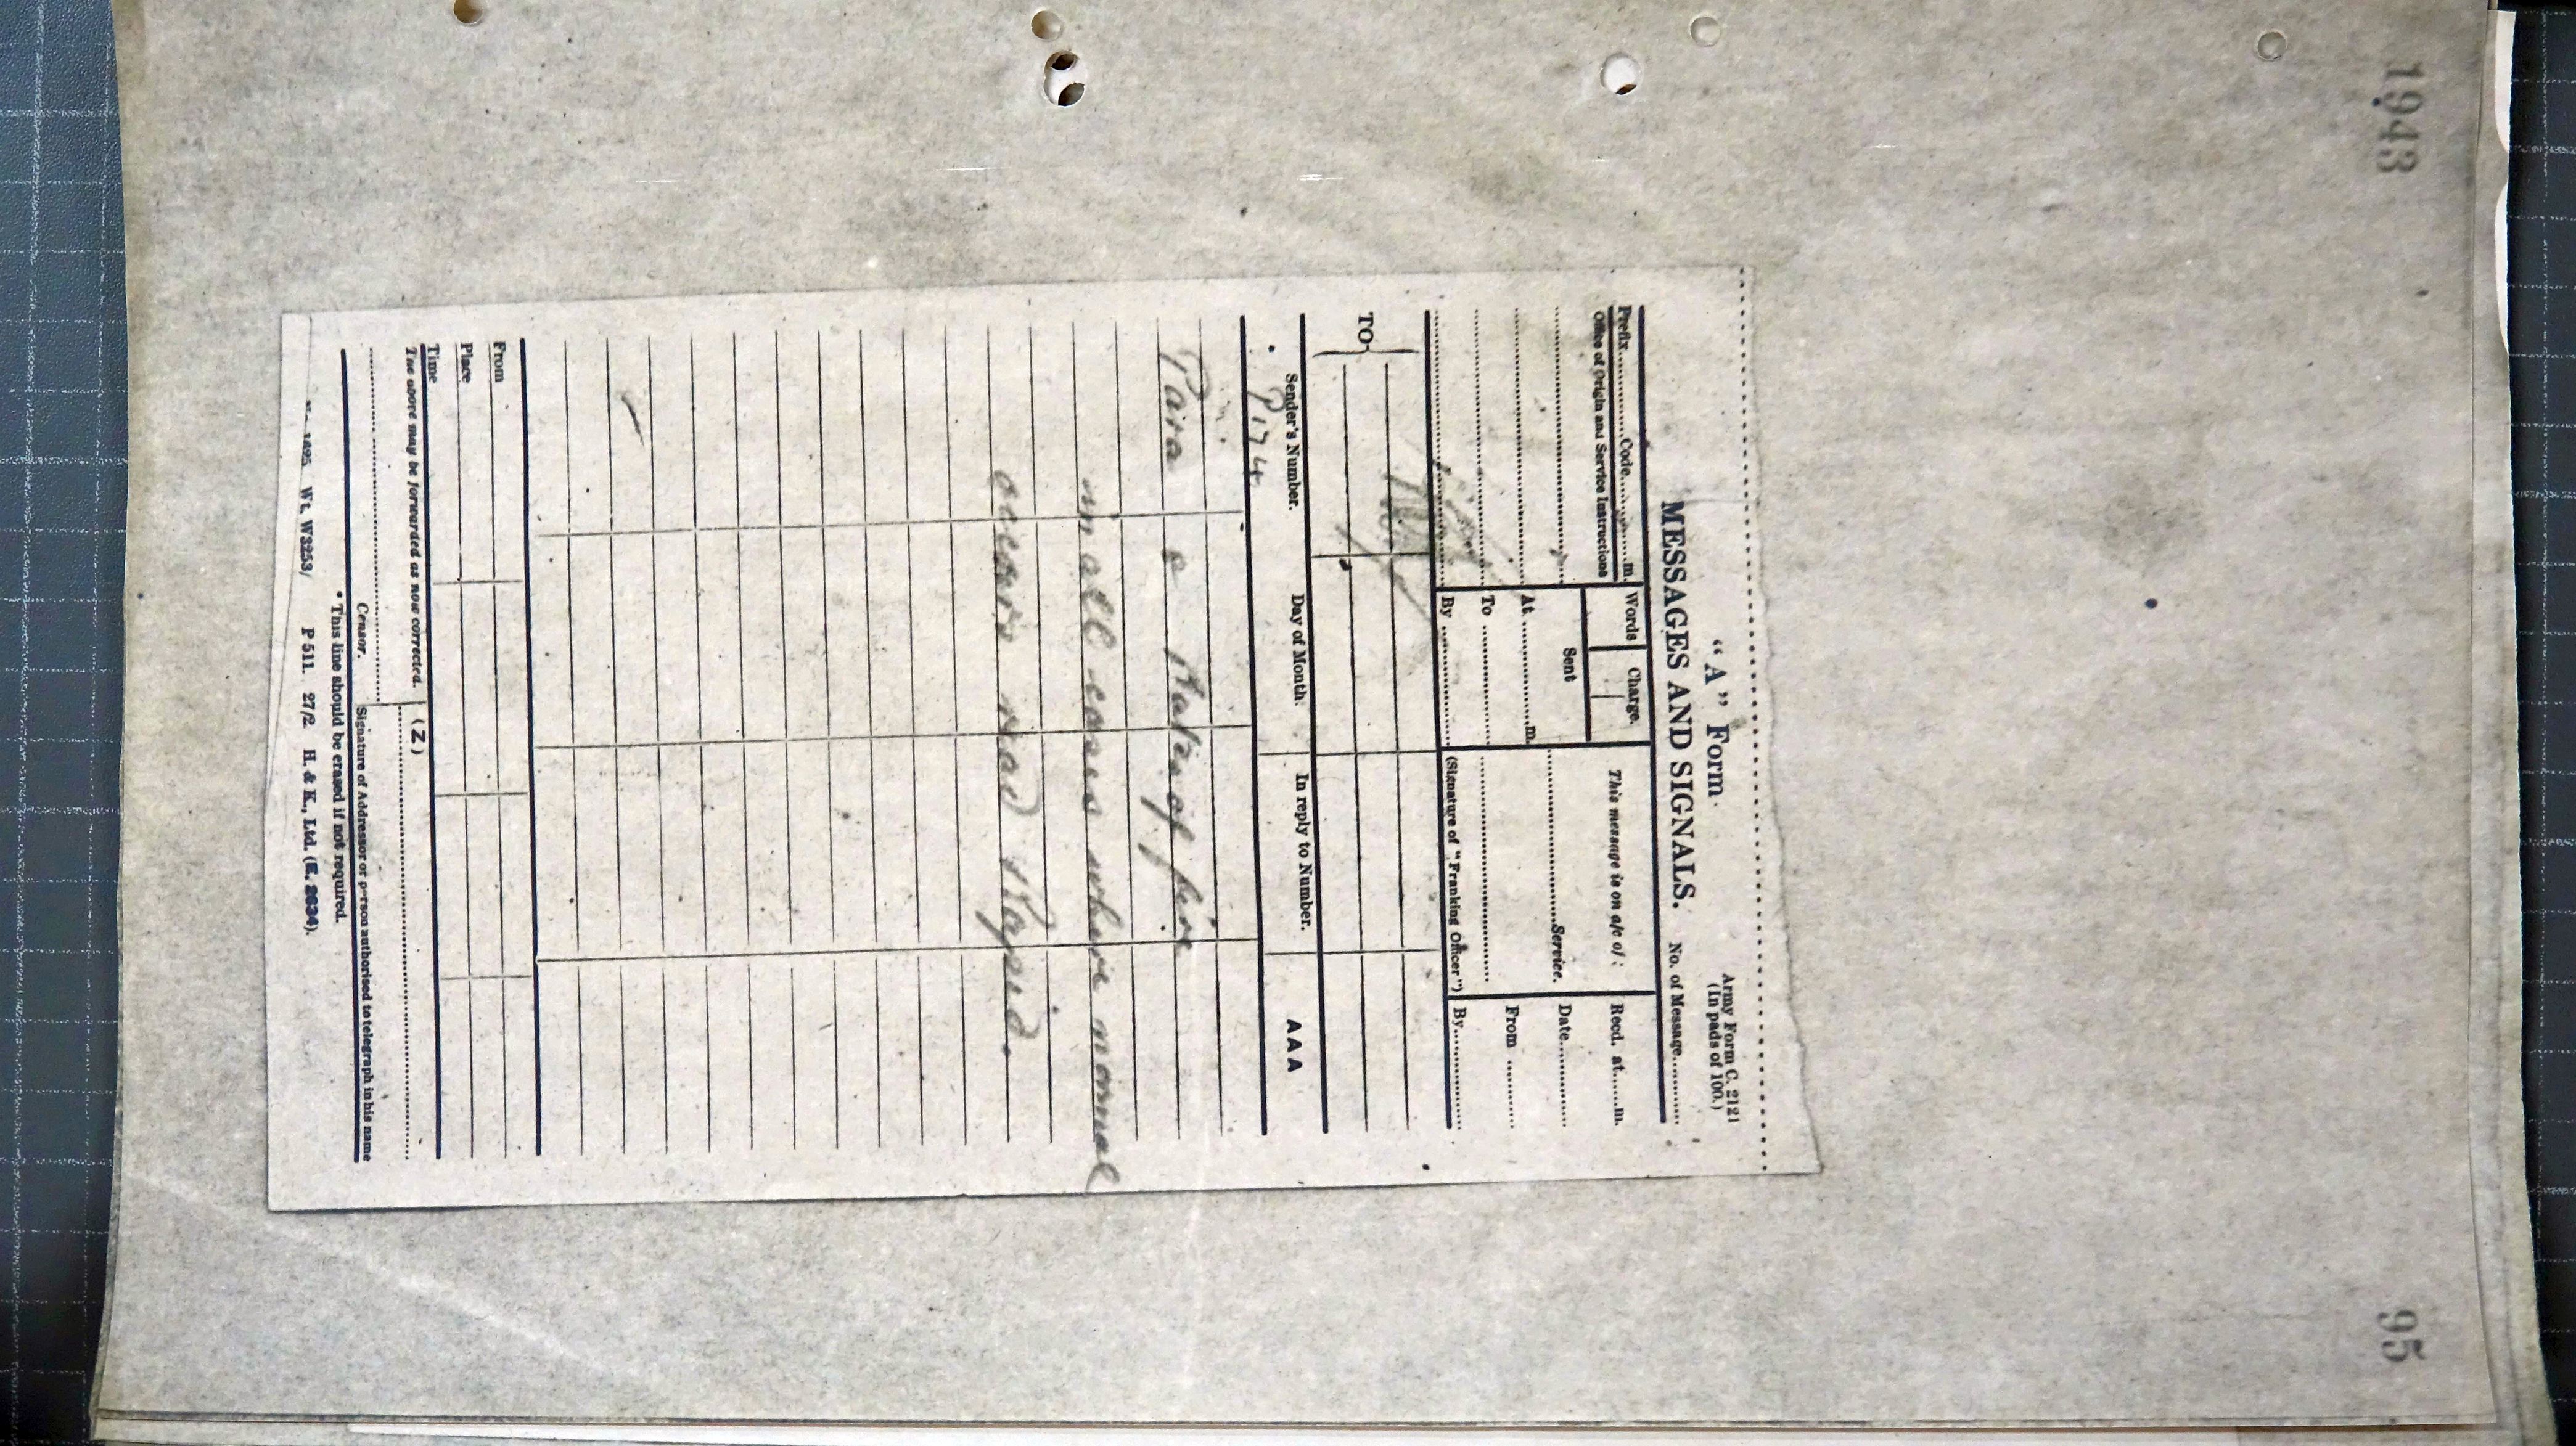 1943
95
"A" Form.
Army Form C. 2121
(In pads of 100.)
MESSAGES AND SIGNALS.
No. of Message............
Prefix............Code............m.
Words
Charge.
This message is on a/c of :
Recd. at......m.
Office of Origin and Service Instructions
Sent
At ............m.
............Service.
Date............
To ............
From ............
By ............
(Signature of "Franking Officer")
By............
TO
Sender's Number.
Day of Month.
In reply to Number.
AAA
P174
Para 2 Rates of fire
in all cases where normal
occurs read Rapid.
From
Place
Time
The above may be forwarded as now corrected.
(Z)
Censor.
Signature of Addressor or person authorised to telegraph in his name
* This line should be erased if not required.
1625 Wt. W3253/ P 511. 27/2 H. & K., Ltd. (E. 2634).